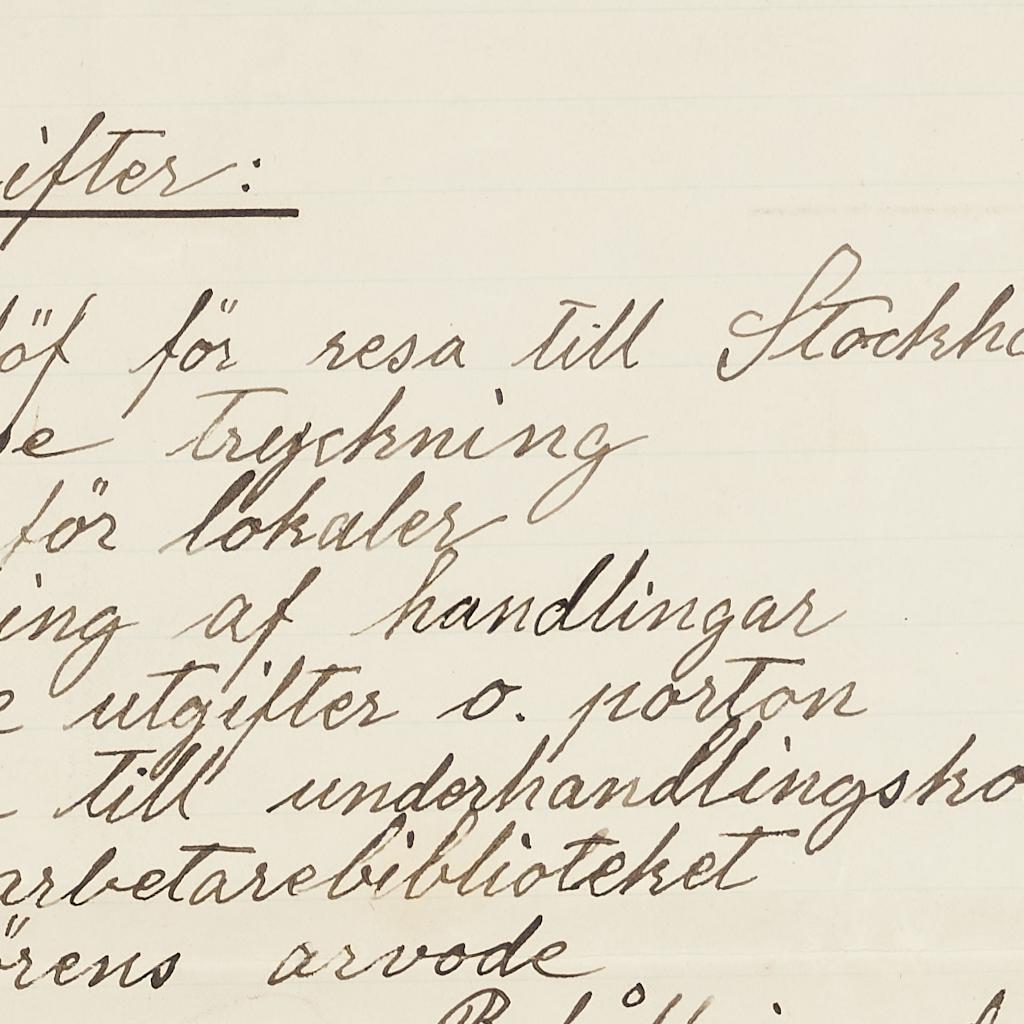 ifter:
löf för resa till Stockho
e tryckning
för lokaler
ing af handlingar
e utgifter o. porton
till underhandlingsko
arbetarebiblioteket
örens arvode